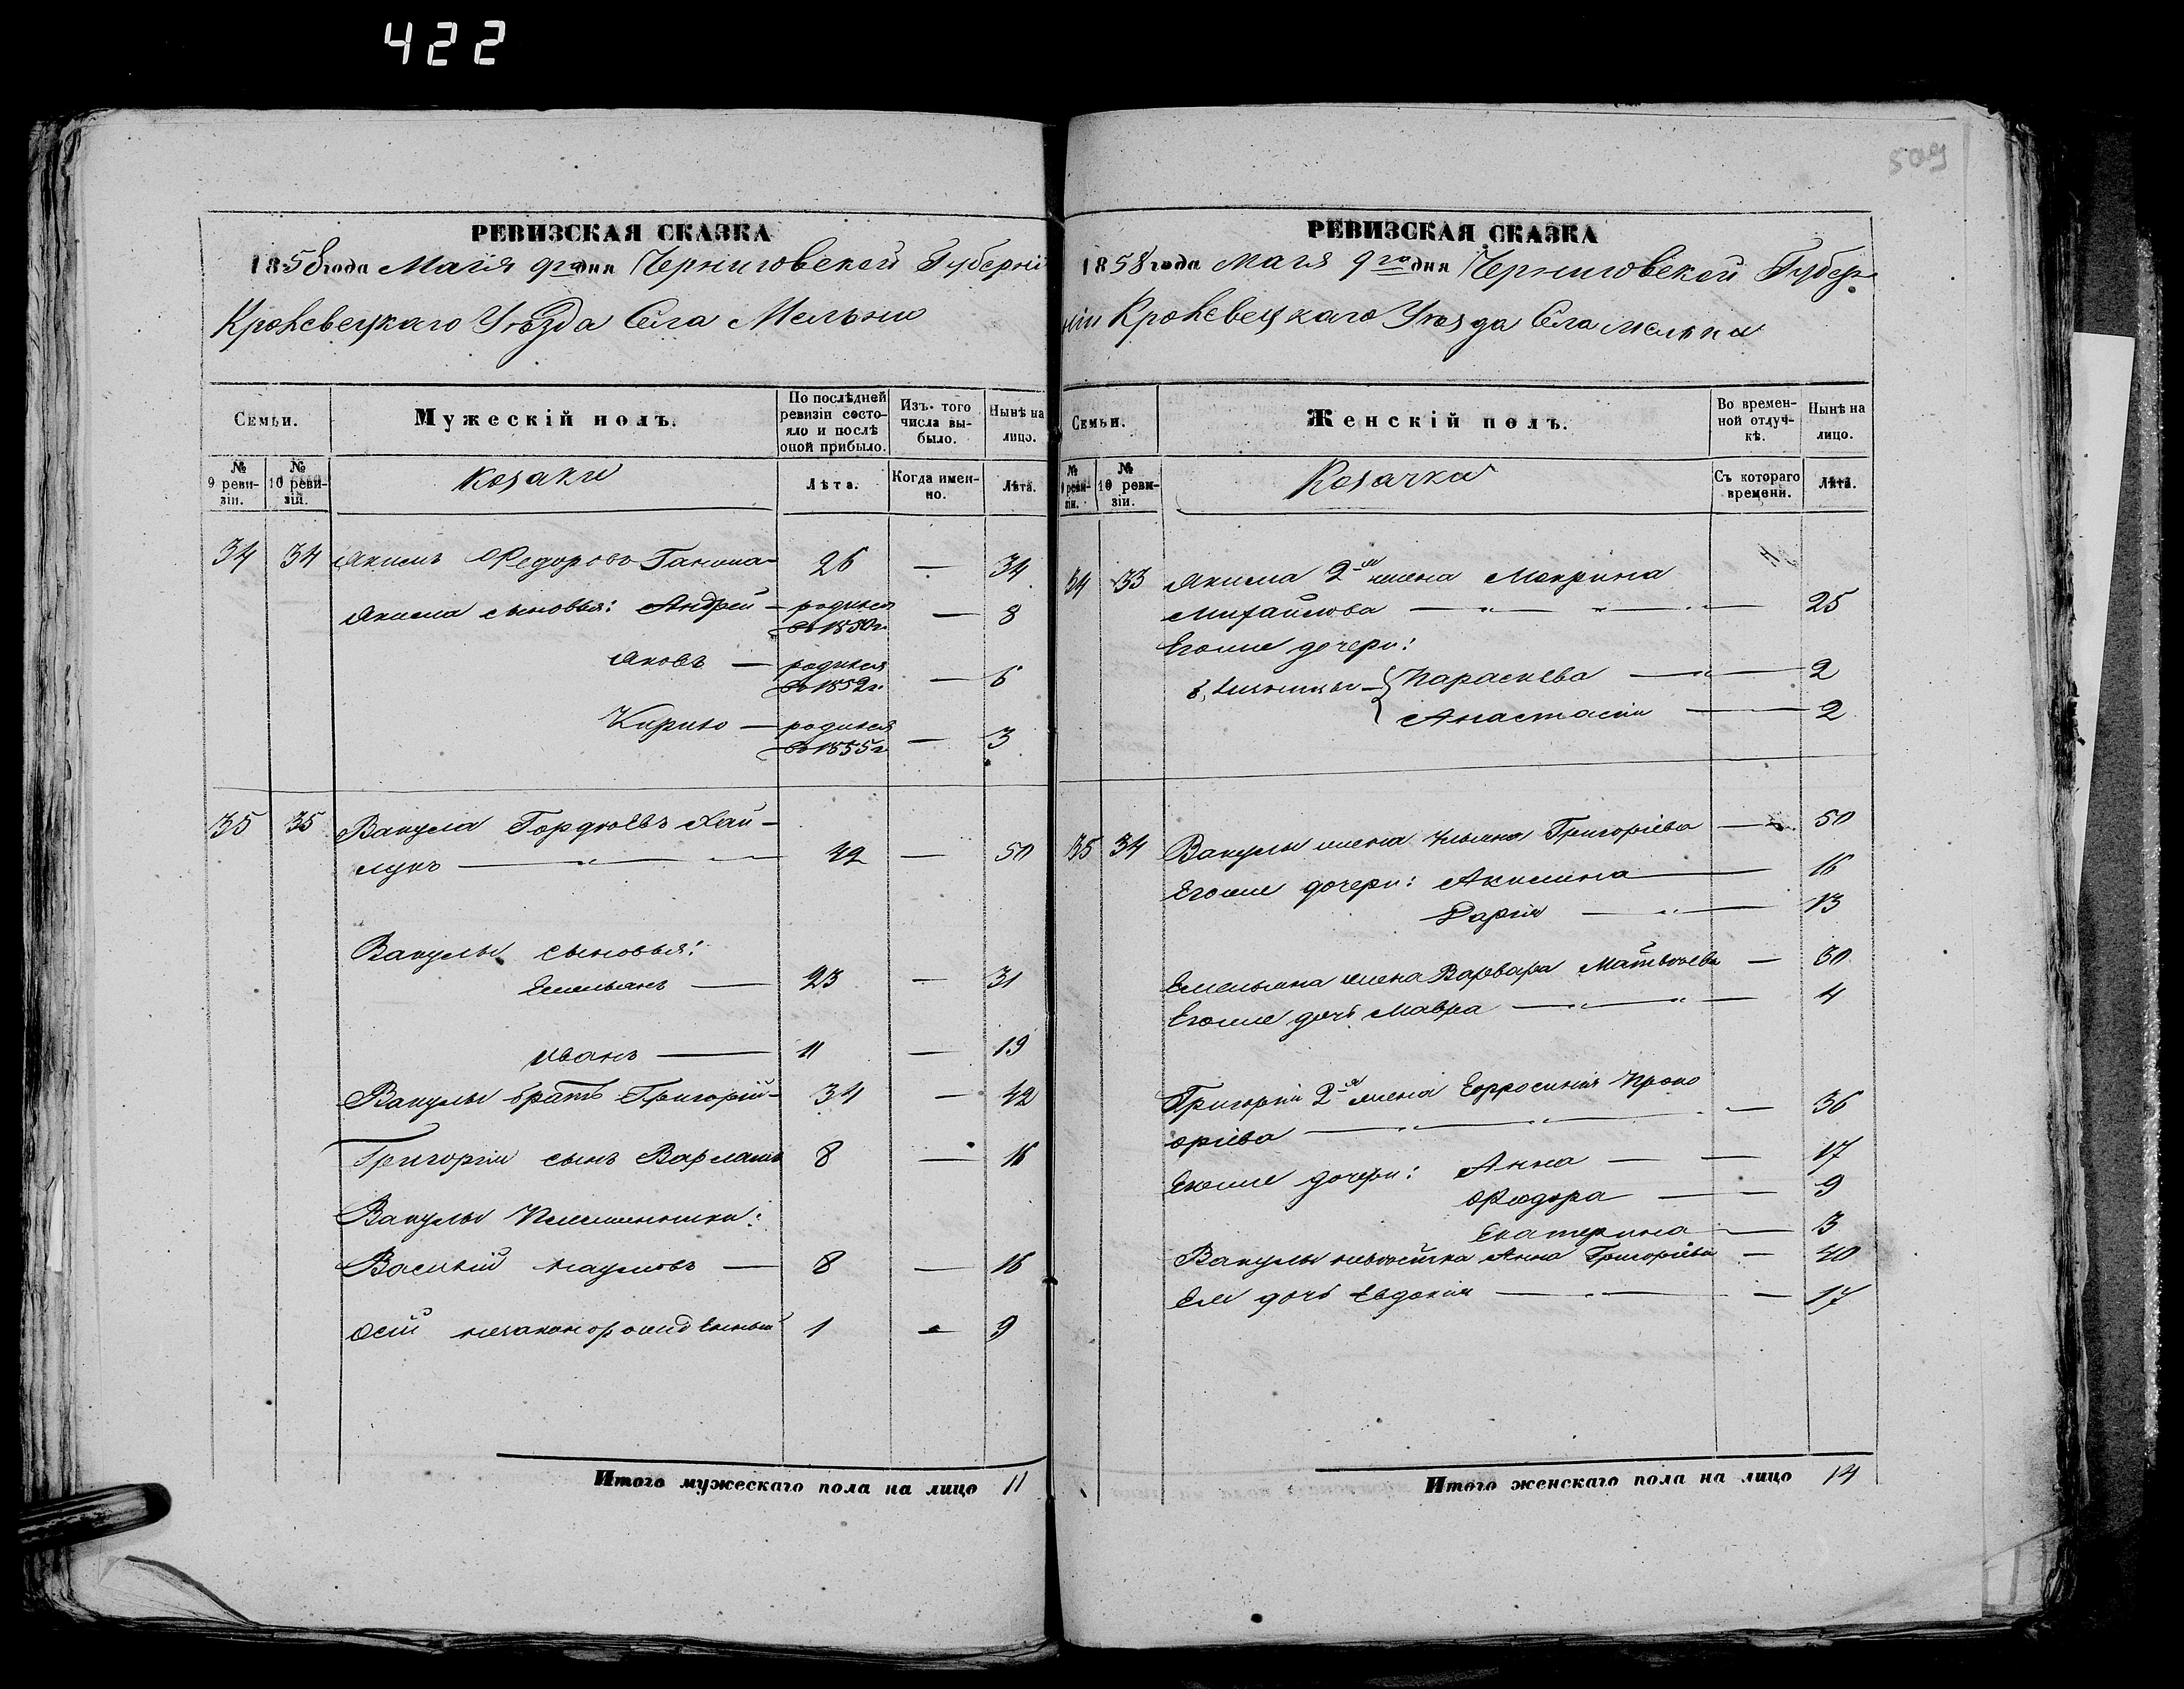 422
509
РЕВИЗСКАЯ СКАЗКА
1858 года Маія 9го дня Черниговской Губерніи
Кролевецкаго Уѣзда Села Мельни
Семьи.
Мужескій полъ.
По послѣдней ревизіи состояло и послѣ оной прибыло.
Изъ того числа выбыло.
Нынѣ на лицо.
№ 9 ревизіи.
№ 10 ревизіи.
Козаки
Лѣта.
Когда именно.
Лѣта.
34 34 Якимъ Федоровъ 26 — 34
Якима сыновья: Андрей — родился въ 1850 г. — 8
Яковъ — родился въ 1852 г. — 6
Кирило — родился въ 1855 г. — 3
35 35 Вакула Гордѣевъ Хай-
лукъ — " — 42 — 50
Вакулы сыновья:
Емельянъ — 23 — 31
Иванъ — 11 — 19
Вакулы братъ Григорій — 34 — 42
Григорія сынъ Варламъ 8 — 16
Вакулы Племянники:
Василій Наумовъ — 8 — 16
Осій незаконорожденный 1 — 9
Итого мужескаго пола на лицо 11
РЕВИЗСКАЯ СКАЗКА
1858 года Маія 9го дня Черниговской Губер-
ніи Кролевецкаго Уѣзда Села Мельни
Семьи.
Женскій полъ.
Во временной отлучкѣ.
Нынѣ на лицо.
№ 9 ревизіи.
№ 10 ревизіи.
Козачки
Съ котораго времени.
Лѣта.
34 33 Якима 2я жена Мокрина
Михайлова — " — " — " — 25
Егоже дочери:
близницы { Параскева — " — 2
Анастасія — 2
35 34 Вакулы жена Ульяна Григоріева — 50
Егоже дочери: Акилина — 16
Дарія — " — 13
Емельяна жена Варвара Матвѣева — 30
Егоже дочь Мавра — " — " — 4
Григорія 2я жена Ефросинія Проко
фіева — " — " — " — 36
Егоже дочери: Анна — — 17
Федора — — 9
Екатерина — 3
Вакулы невѣстка Анна Григоріева — 40
Ея дочь Евдокія — " — — 17
Итого женскаго пола на лицо 14